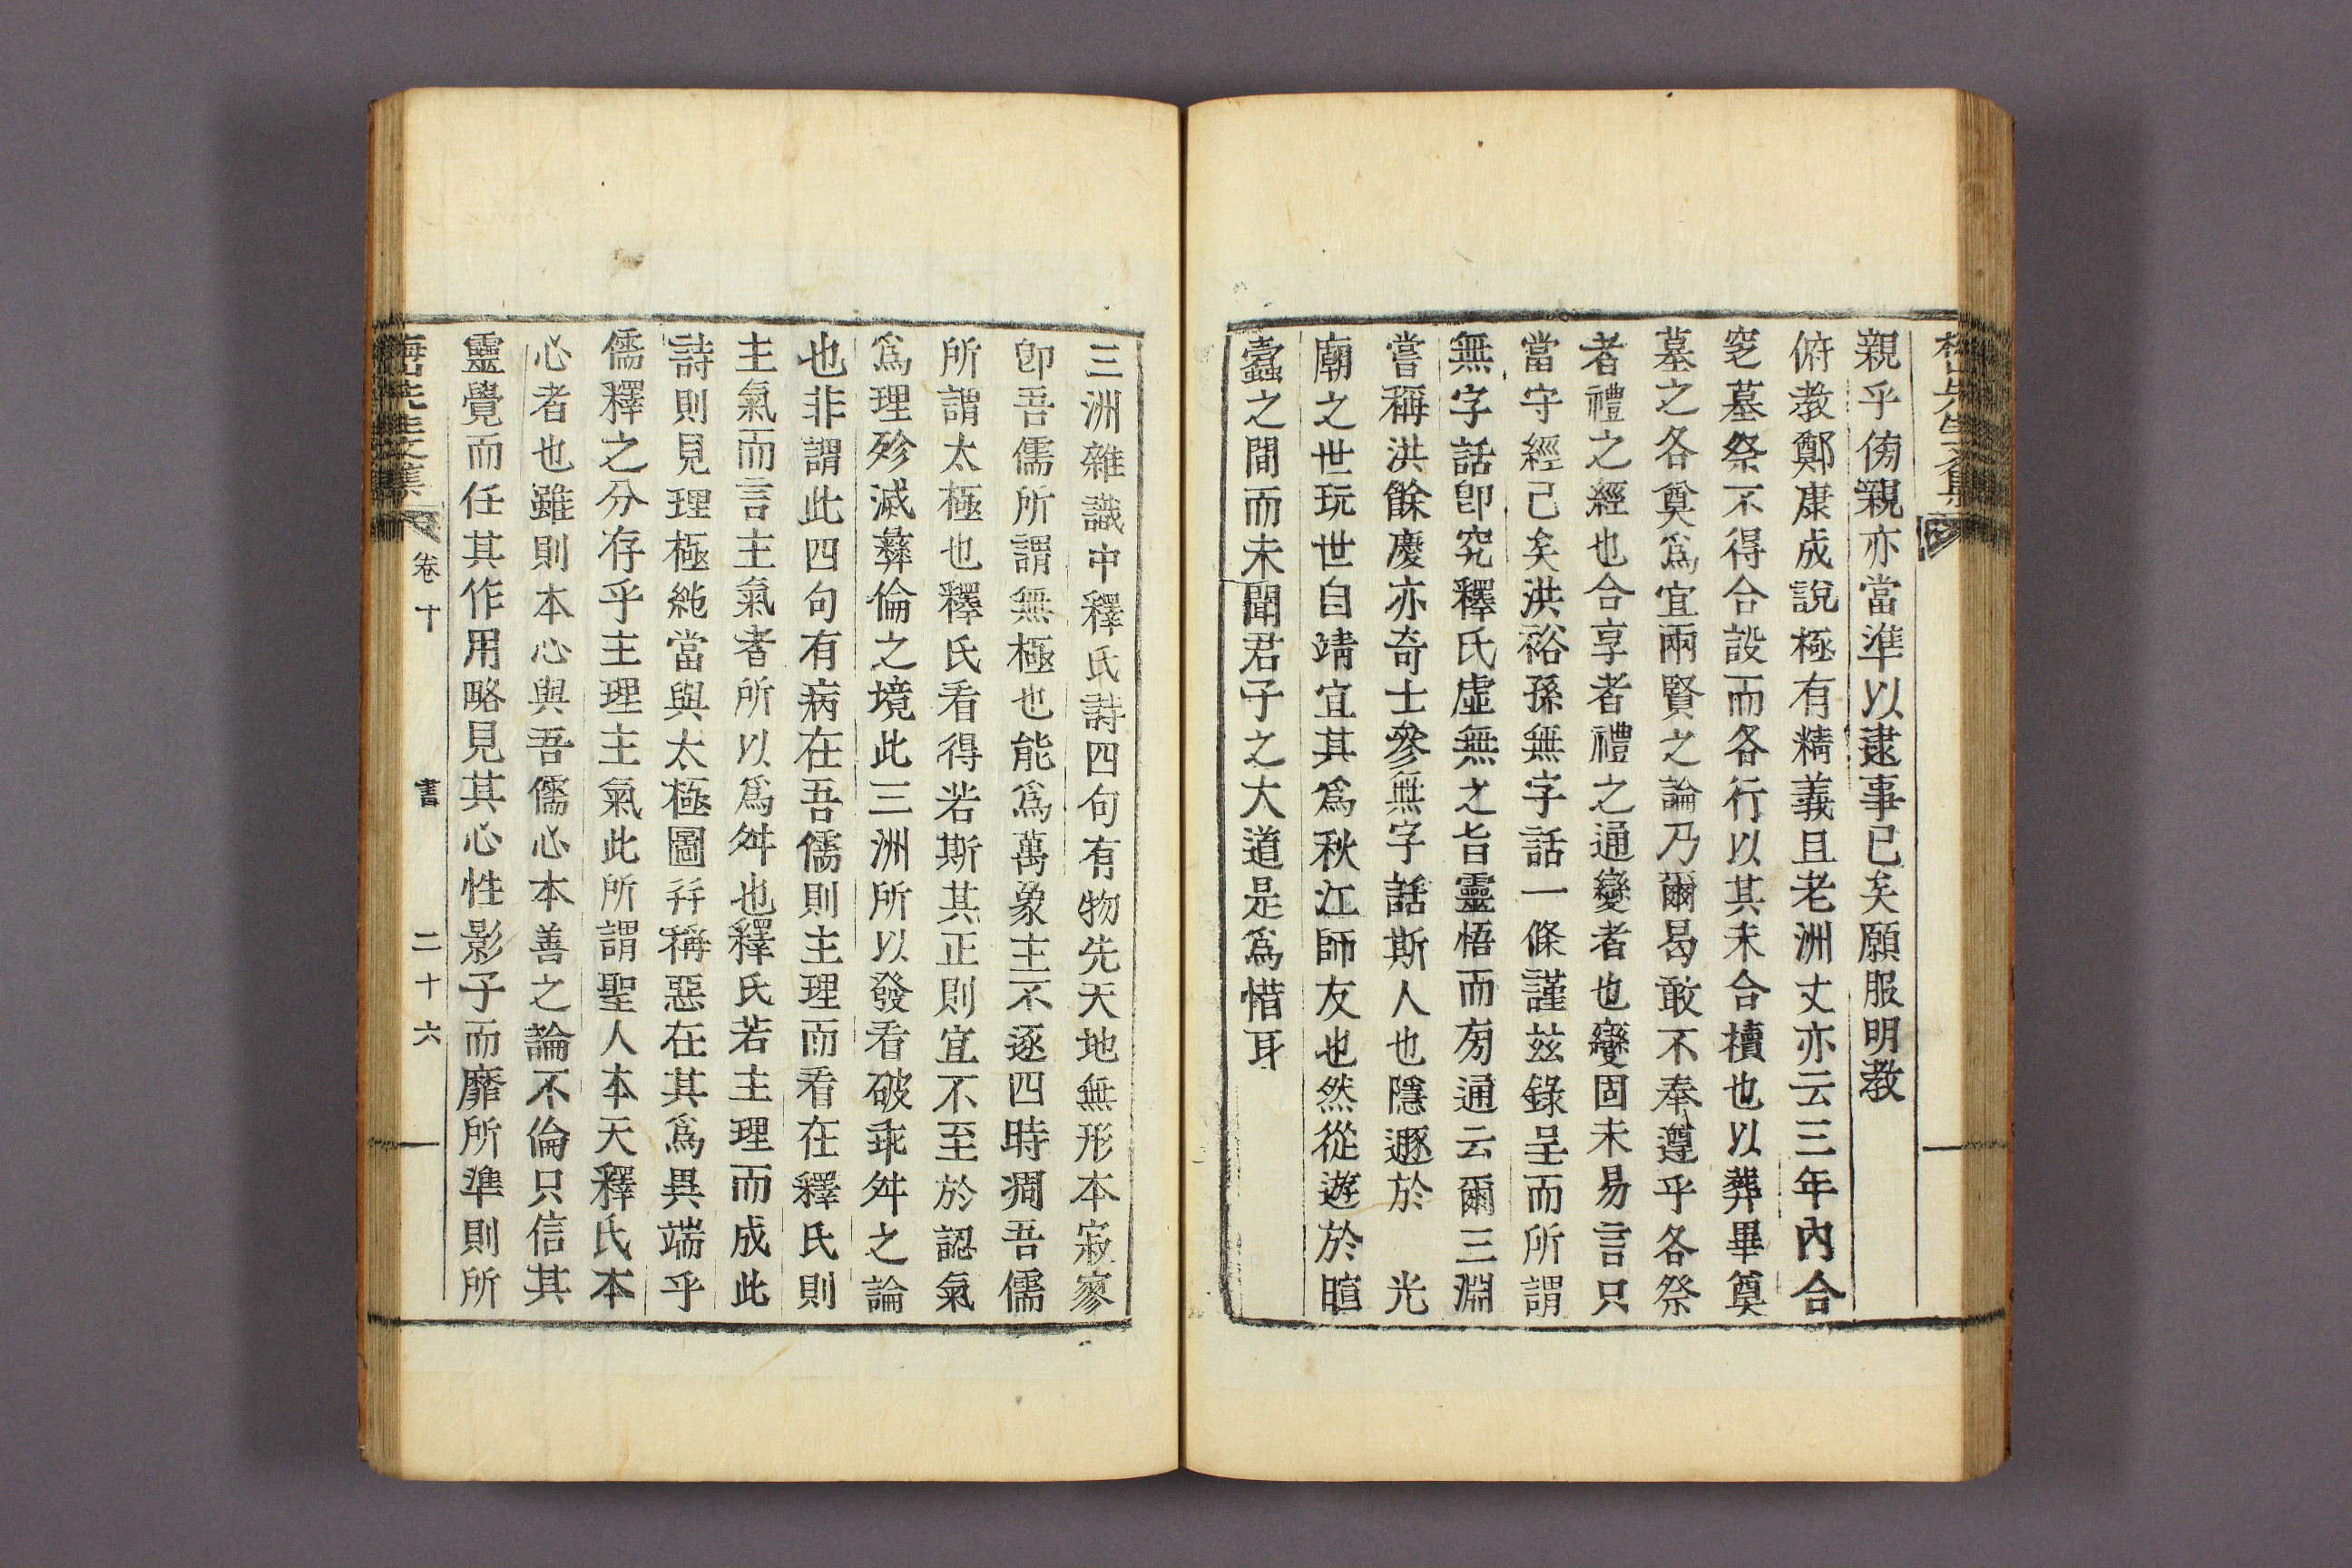 梅山先生文集
親乎傍親亦當準以逮事已矣願服明教
俯教鄭康成說極有精義且老洲丈亦云三年內合
窆墓祭不得合設而各行以其未合櫝也以葬畢奠
墓之各奠爲宜兩賢之論乃爾曷敢不奉遵乎各祭
者禮之經也合享者禮之通變者也變固未易言只
當守經已矣洪裕孫無字話一條謹玆錄呈而所謂
無字話卽究釋氏虛無之旨靈悟而旁通云爾三淵
嘗稱洪餘慶亦奇士參無字話斯人也隱遯於 光
廟之世玩世自靖宜其爲秋江師友也然從遊於暄
蠧之間而未聞君子之大道是爲惜耳
三洲雜識中釋氏詩四句有物先天地無形本寂寥
卽吾儒所謂無極也能爲萬象主不逐四時凋吾儒
所謂太極也釋氏看得若斯其正則宜不至於認氣
爲理殄滅彝倫之境此三洲所以發看破乖舛之論
也非謂此四句有病在吾儒則主理而看在釋氏則
主氣而言主氣者所以爲舛也釋氏若主理而成此
詩則見理極純當與太極圖幷稱惡在其爲異端乎
儒釋之分存乎主理主氣此所謂聖人本天釋氏本
心者也雖則本心與吾儒心本善之論不倫只信其
靈覺而任其作用略見其心性影子而靡所準則所
梅山先生文集 卷十 書 二十六